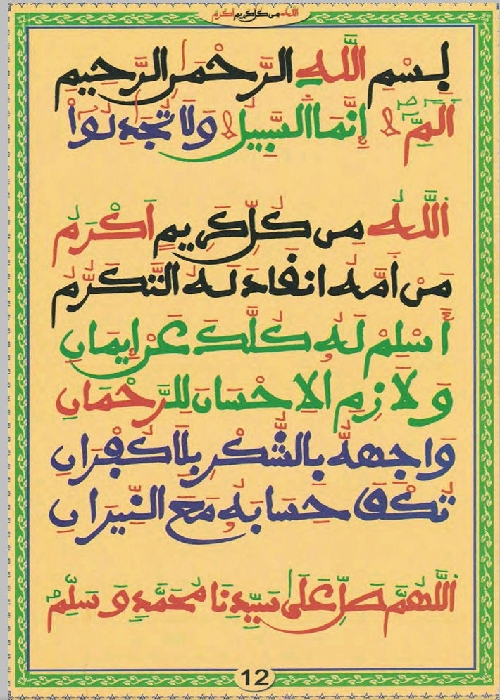 اللَّه من كل كريم أكرم
بِسْمِ اللَّهِ الرَّحْمَنِ الرَّحِيمِ
الَمِّ إِنَّمَا السَّبِيلُ وَلَا تُجَدِلُواْ
اللَّه مِن كُلِّ كَرِيمٍ أَكْرَمُ
مَنْ أَمَّهُ انقَادَ لَهُ التَّكَرُّمُ
أَسْلِمْ لَهُ كُلَّكَ عَن إِيمَانِ
وَلَازِمِ الِاحْسَانَ لِلرَّحْمَانِ
وَاجِّهْهُ بِالشُّكْرِ بِلَا كُفْرَانِ
تُكْفَ حِسَابَهُ مَعَ النِّيرَانِ
اللَّهُمَّ صَلِّ عَلَى سَيِّدِنَا مُحَمَّدٍ وَسَلِّمْ
12